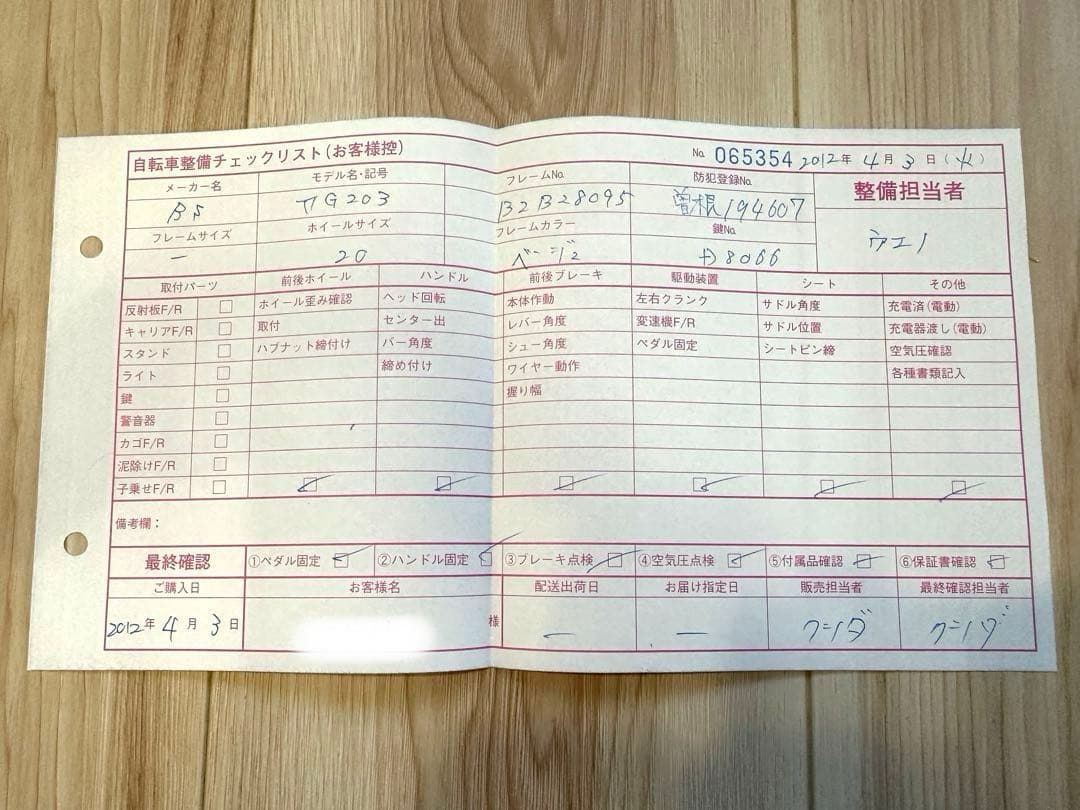 自転車整備チェックリスト(お客様控)
No 065354 2012年 4月 3日(火)
メーカー名 モデル名・記号 フレームNo 防犯登録No 整備担当者
BS G203 B2B28095 曽根194607
フレームサイズ ホイールサイズ フレームカラー 鍵No ウエノ
— 20 ベージュ 8066
取付パーツ 前後ホイール ハンドル 前後ブレーキ 駆動装置 シート その他
反射板F/R □ ホイール歪み確認 ヘッド回転 本体作動 左右クランク サドル角度 充電済(電動)
キャリアF/R □ 取付 センター出 レバー角度 変速機F/R サドル位置 充電器渡し(電動)
スタンド □ ハブナット締付け バー角度 シュー角度 ペダル固定 シートピン締 空気圧確認
ライト □ 締め付け ワイヤー動作 各種書類記入
鍵 □ 握り幅
警音器 □
カゴF/R □
泥除けF/R □
子乗せF/R □ ☑ ☑ ☑ ☑ ☑ ☑
備考欄:
最終確認 ①ペダル固定 ☑ ②ハンドル固定 ☑ ③ブレーキ点検 ☑ ④空気圧点検 ☑ ⑤付属品確認 ☑ ⑥保証書確認 ☑
ご購入日 お客様名 配送出荷日 お届け指定日 販売担当者 最終確認担当者
2012年 4月 3日 様 — — クニイダ クニイダ